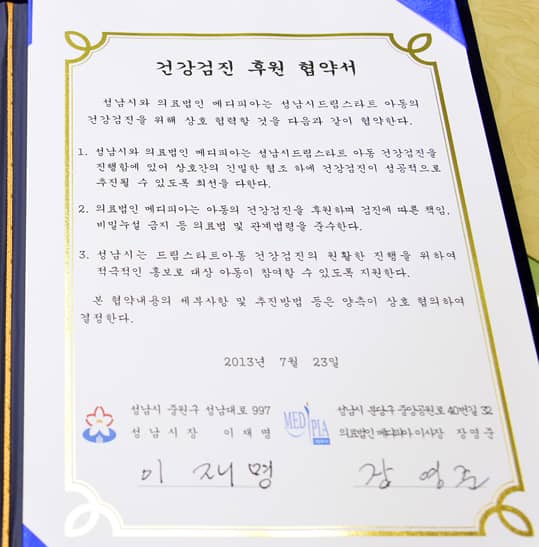 건강검진 후원 협약서
성남시와 의료법인 메디피아는 성남시드림스타트 아동의
건강검진을 위해 상호 협력할 것을 다음과 같이 협약한다.
1. 성남시와 의료법인 메디피아는 성남시드림스타트 아동 건강검진을
진행함에 있어 상호간의 긴밀한 협조 하에 건강검진이 성공적으로
추진될 수 있도록 최선을 다한다.
2. 의료법인 메디피아는 아동의 건강검진을 후원하며 검진에 따른 책임,
비밀누설 금지 등 의료법 및 관계법령을 준수한다.
3. 성남시는 드림스타트아동 건강검진의 원활한 진행을 위하여
적극적인 홍보로 대상 아동이 참여할 수 있도록 지원한다.
본 협약내용의 세부사항 및 추진방법 등은 양측이 상호 협의하여
결정한다.
2013년 7월 23일
성남시 중원구 성남대로 997
성남시장 이재명
이재명
MEDIPIA
성남시 분당구 중앙공원로 40번길 32
의료법인 메디피아 이사장 장영준
장영준